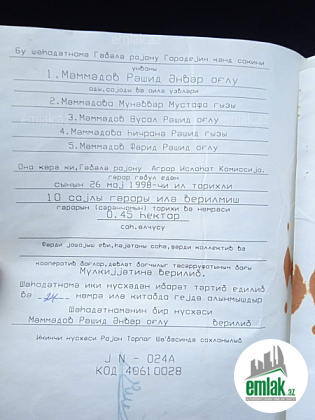 Бу шәһадәтнамә Гәбәлә рајону Бородејин кәнд сакини
үнваны
1.Мәммәдов Рәшид Әнвәр оғлу
ады,сојады вә аилә үзвләри
2.Мәммәдова Мүнәввәр Мустафа гызы
3.Мәммәдов Вүсал Рәшид оғлу
4.Мәммәдова Һичранә Рәшид гызы
5.Мәммәдов Фәрид Рәшид оғлу
Она ҝөрә ки,Гәбәлә рајону Аграр Ислаһат Комиссија.
гәрар гәбул едән
сынын 26 мај 1998-чи ил тарихли
10 сајлы гәрары илә верилмиш
гәрарын (сәрәнчамын) тарихи вә нөмрәси
0.45 һектар
саһ.өлчүсү
Фәрди јашајыш еви,һәјәтјаны саһә,фәрди коллектив вә
кооператив бағлар,дөвләт бағчылыг тәсәррүфатынын бағы
Мүлкијјәтинә верилиб.
Шәһадәтнамә ики нүсхәдән ибарәт тәртиб едилиб
вә 24 нөмрә илә китабда гејдә алынмышдыр
Шәһадәтнамәнин бир нүсхәси
Мәммәдов Рәшид Әнвәр оғлу верилиб
Икинчи нүсхәси Рајон Торпаг Шө'бәсиндә сахланылыб
J N - 024А
КОД 40610028
emlak.az